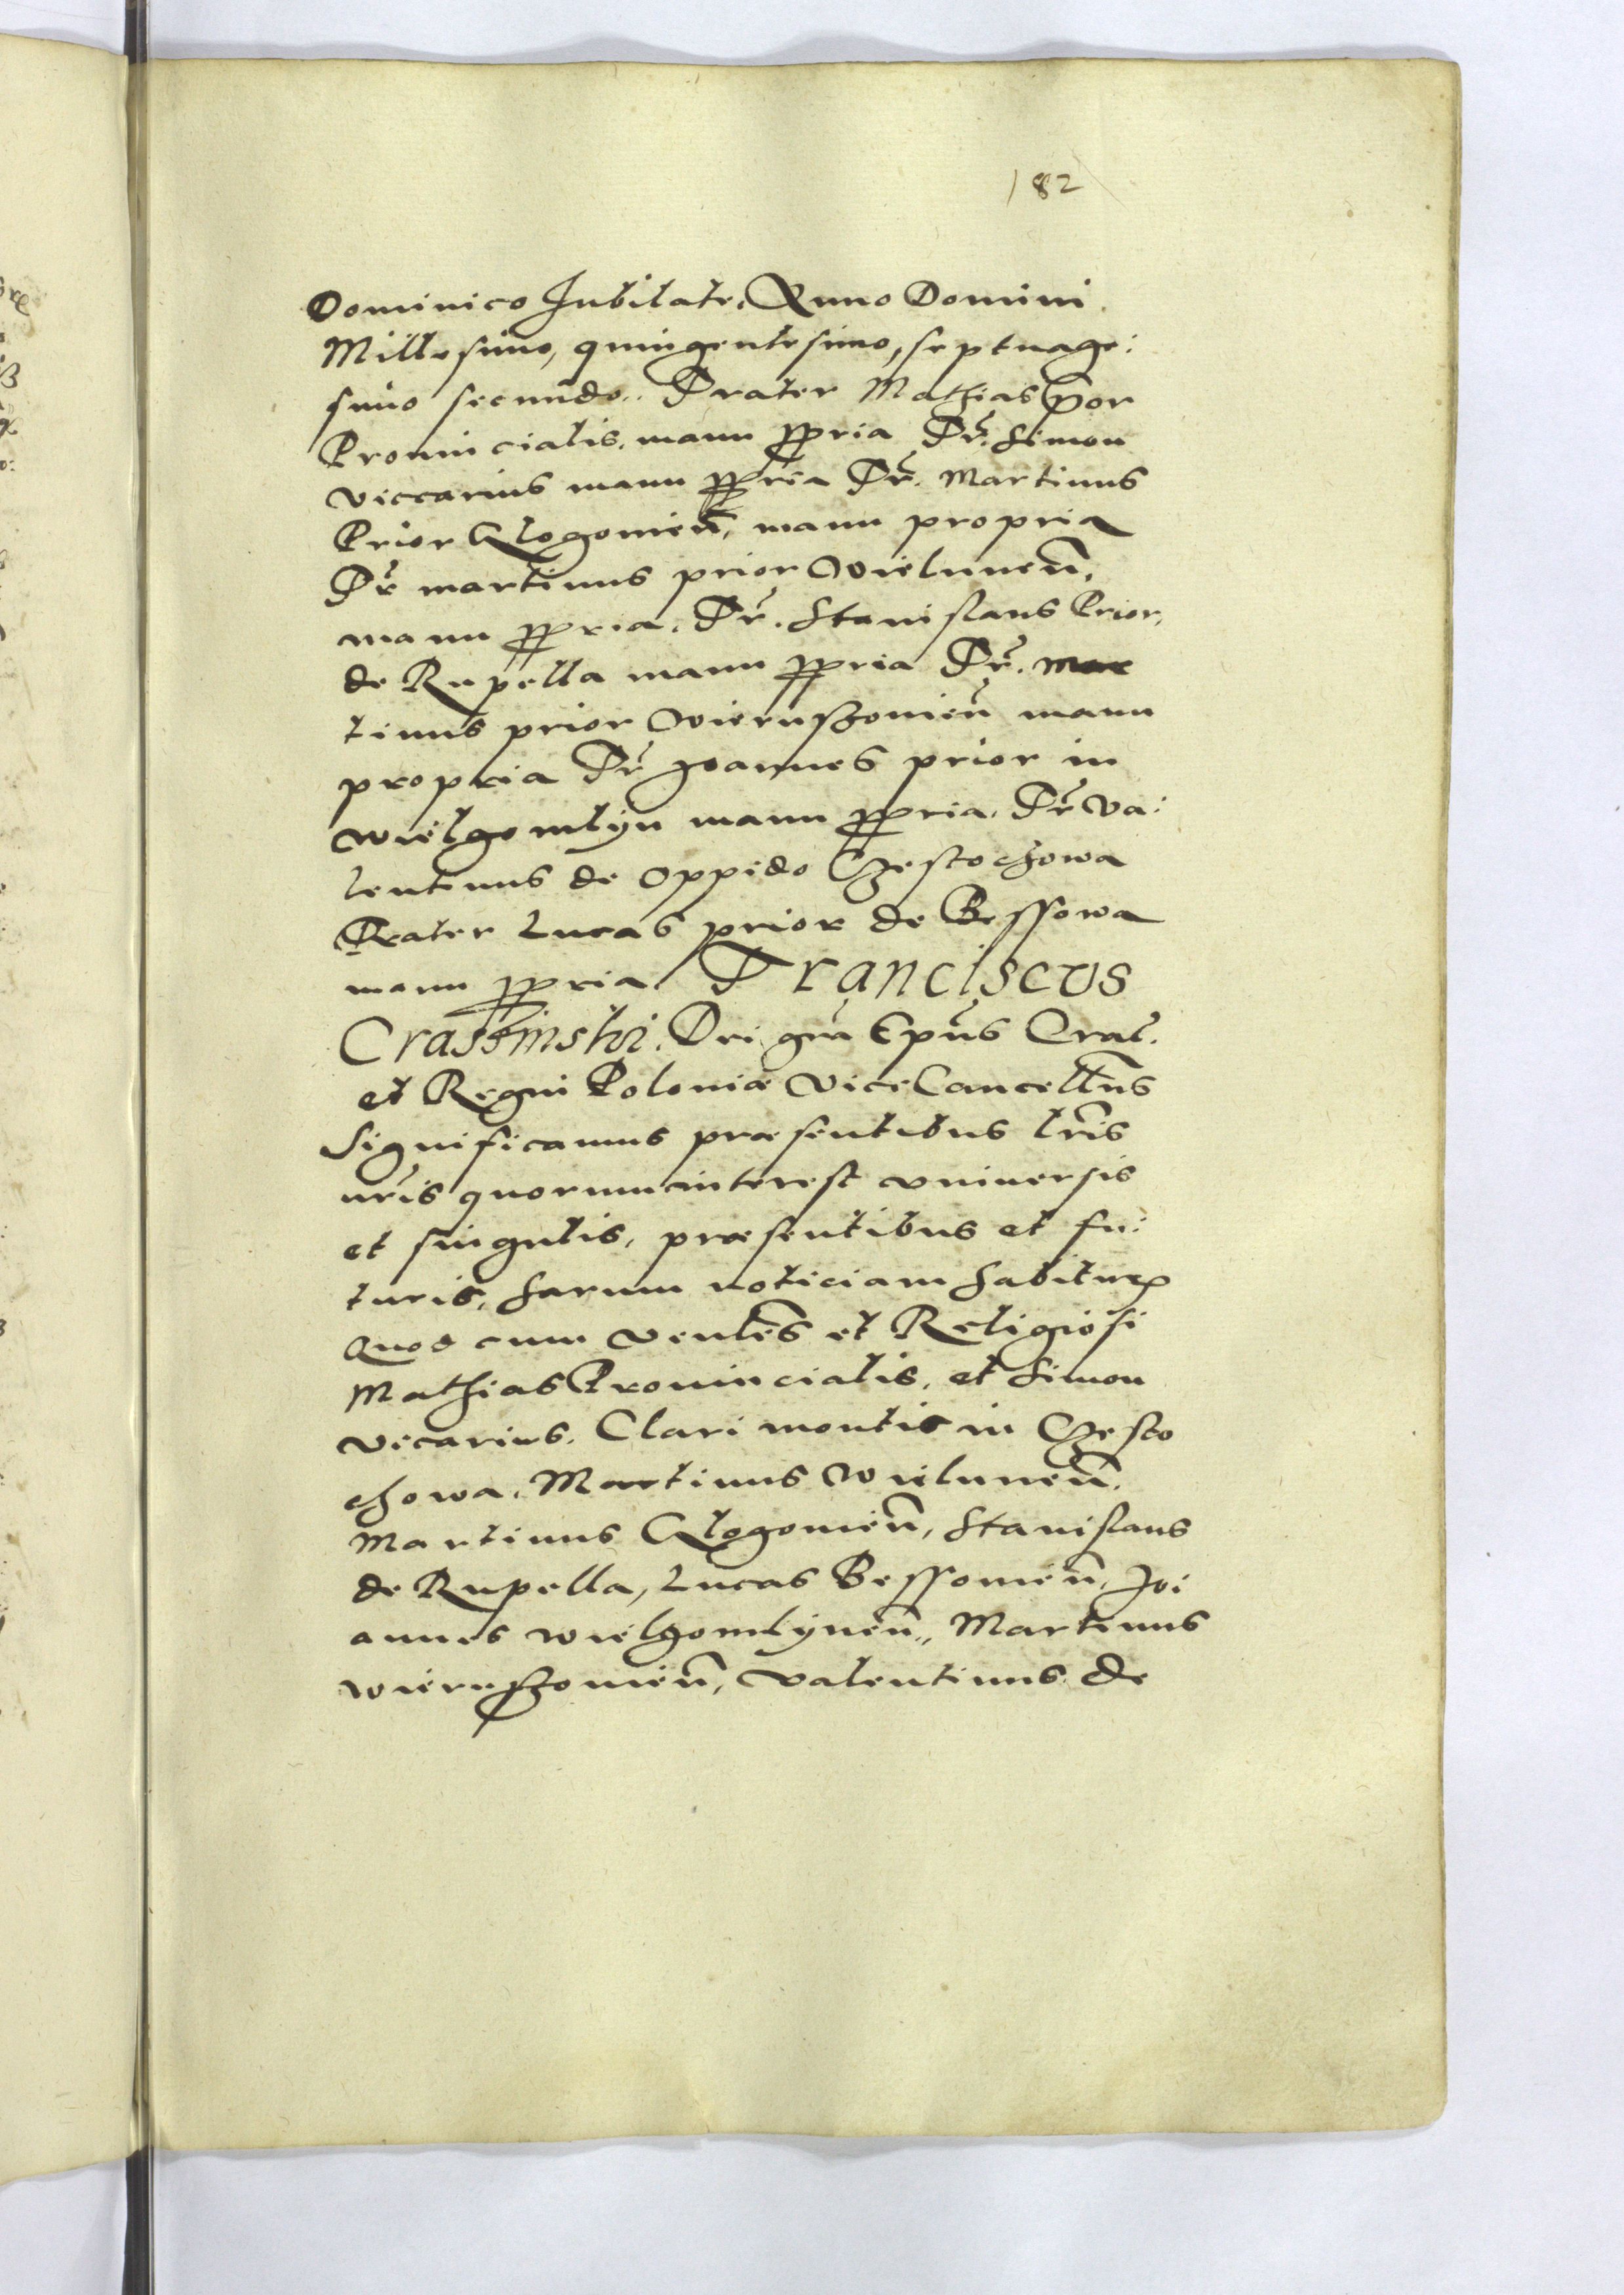 182
Dominico Jubilate, Anno Domini
Millesimo, quingentesimo, septuage:
simo secundo. Frater Mathias Pór
Prouincialis, manu ppria Fr̃. Simon
viccarius manu ppria Fr̃. Martinus
Prior Glogouieñ, manu propria
Fr̃ martinus prior Wieluneñ,
manu ppria. Fr̃. Stanislaus Prior,
de Rupella manu ppria Fr̃. Mar
tinus prior Wieruszouieñ manu
propria Fr̃ Joannes prior in
wielgomlyn manu ppria. Fr̃ Va:
lentinus de oppido Czestochowa
Frater Lucas prior de Bessowa
manu ppria Franciscus
Crassinski. Dei grã Epũs Crac̃.
et Regni Poloniæ ViceCancellrĩus
Significamus præsentibus lrĩs
nrĩs quorum interest vniuersis
et singulis, præsentibus et fu:
turis, harum noticiam habitur̃
Quod cum Venlẽs et Religiosi
Mathias Prouincialis, et Simon
vicarius. Clari montis in Czesto
chowa, Martinus Wieluneñ.
Martinus Glogouieñ, Stanislaus
de Rupella, Lucas Bessouieñ, Jo:
annes wielgomlyneñ, Martinus
wieruszouieñ, Valentinus de